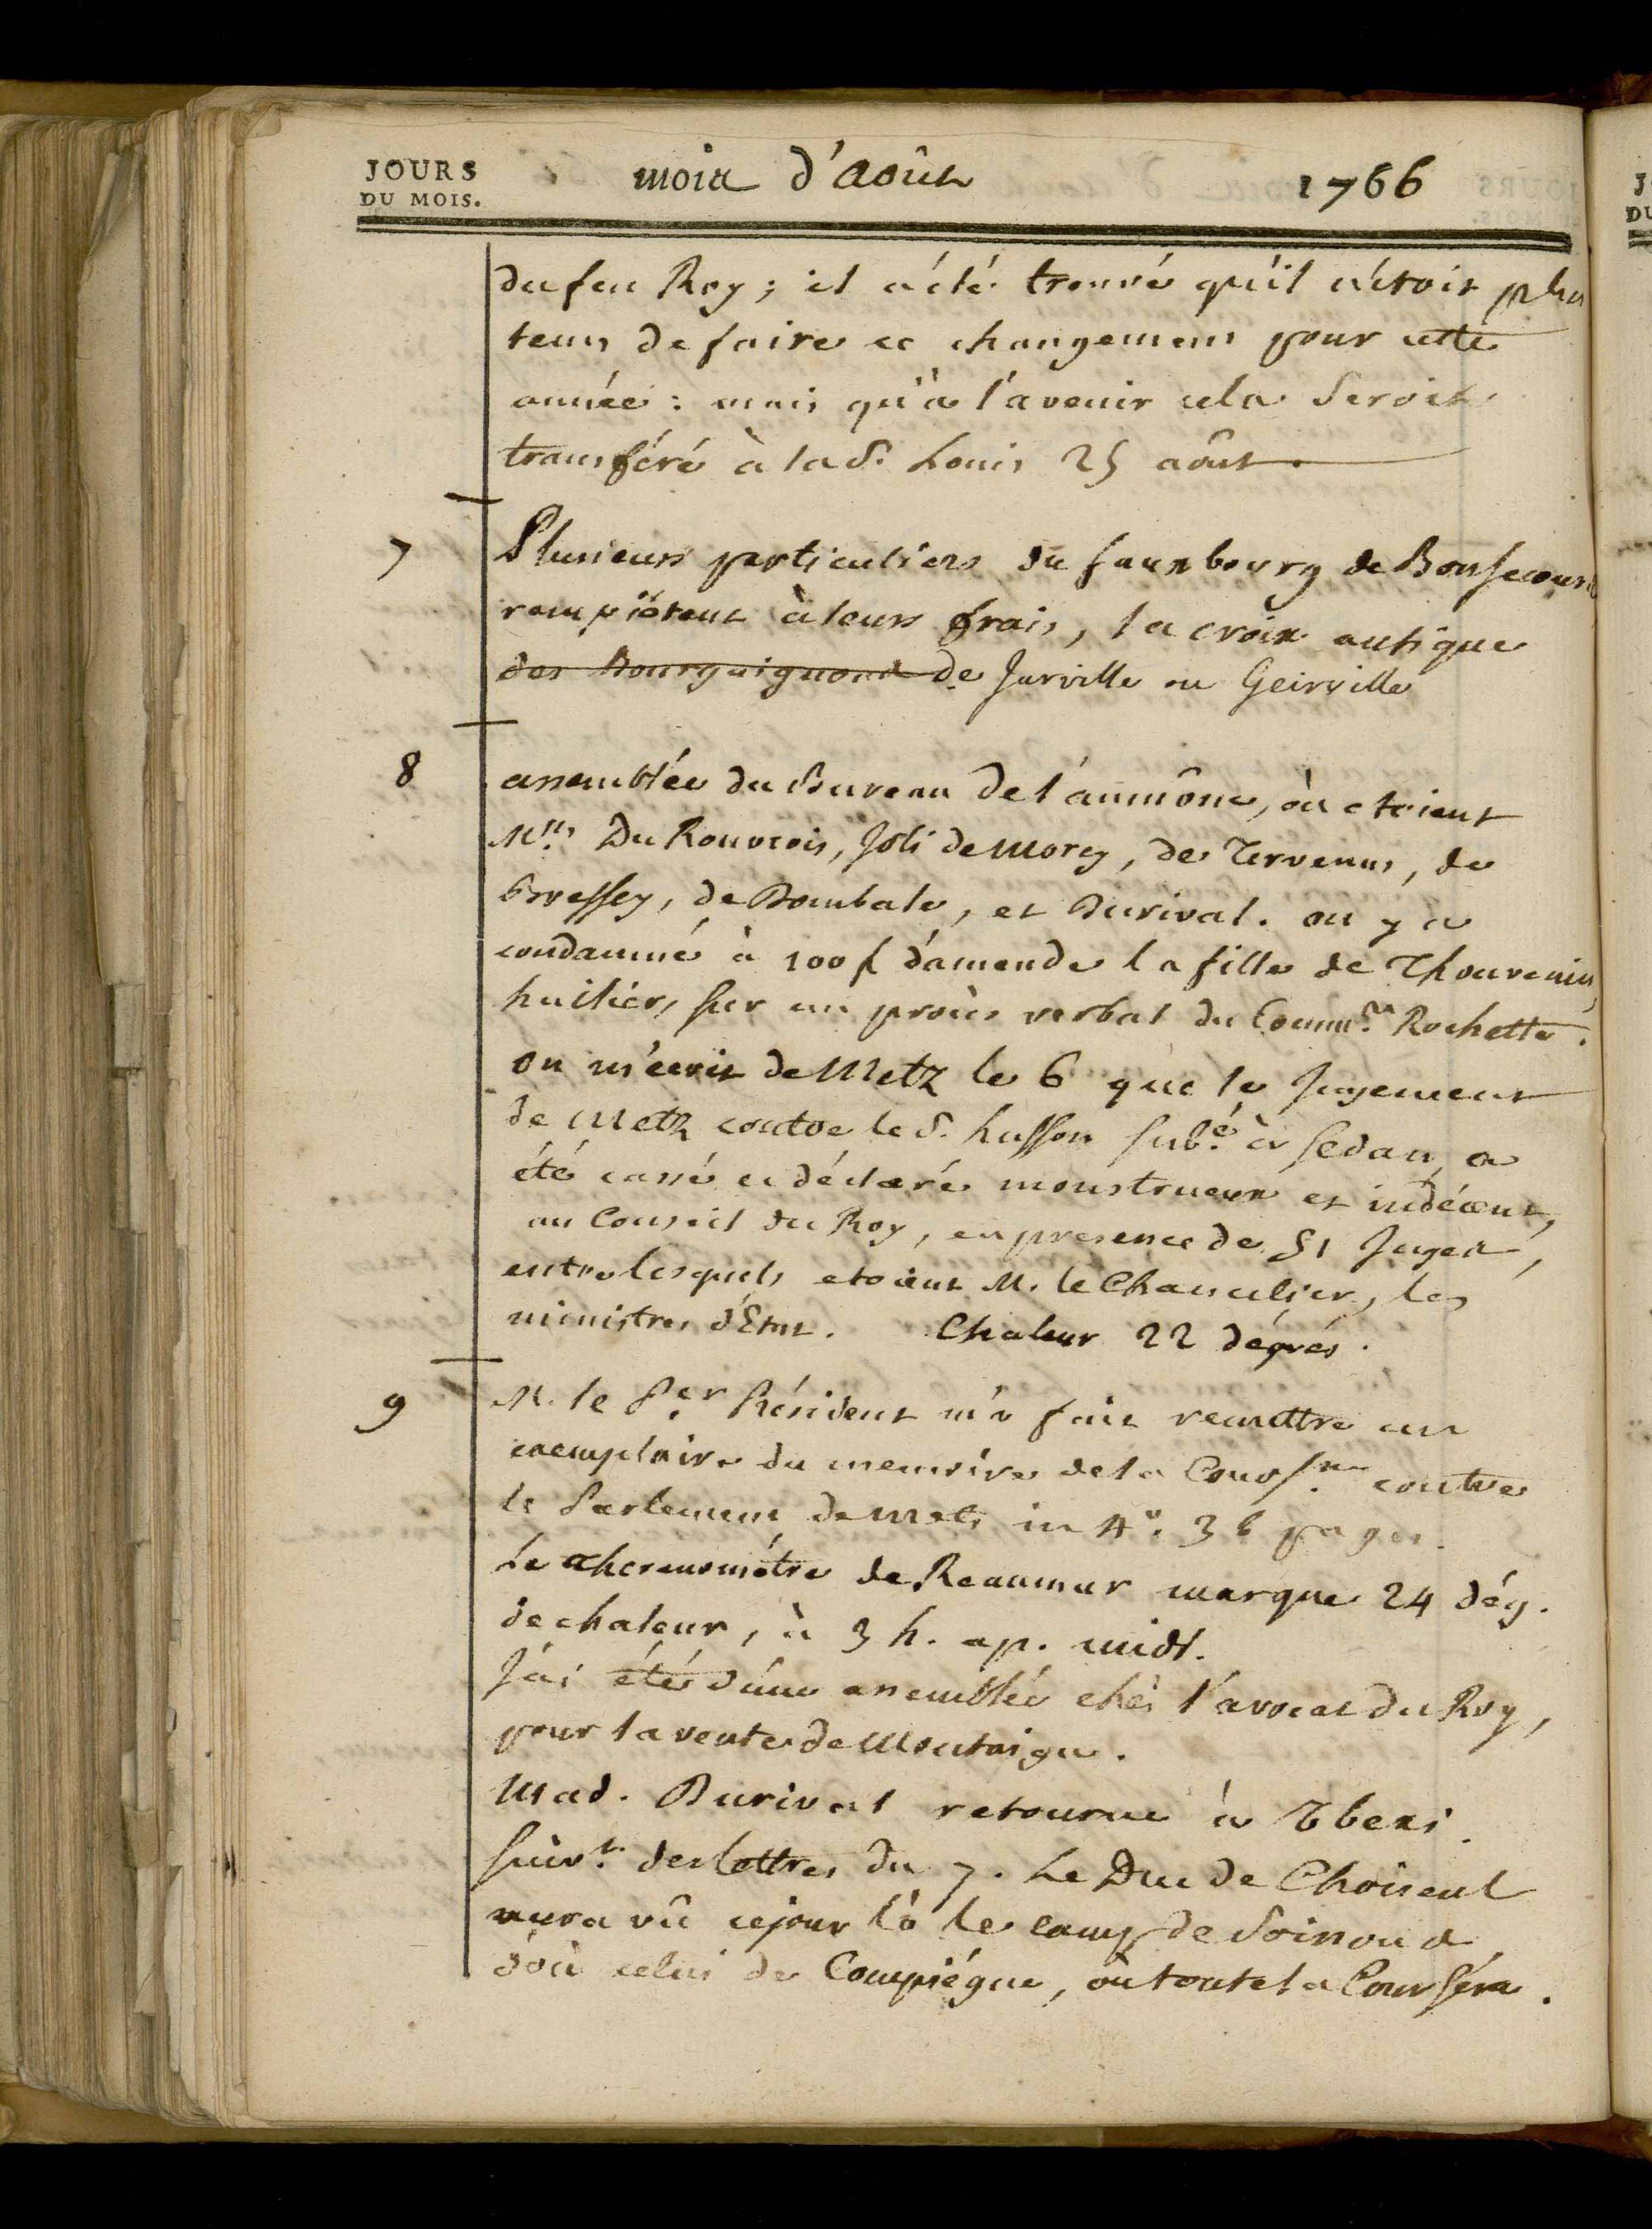 JOURS
DU MOIS.
mois d'août
1766
du feu Roy; il a été trouvé qu'il n'étoit plus
tems de faire ce changement pour cette
année: mais qu'à l'avenir cela seroit
transféré à la S. Louis 25 août.
7
Plusieurs particuliers du fauxbourg de Bonsecours
rempiétent à leurs frais, la croix antique
des Bourguignons de Jarville ou Geirville
8
assemblée du Bureau de l'aumône, où etoient
Mrs. Du Rouvrois, Joli de Morey, de Tervenus, de
Bressey, de Bombale, et Durival. on y a
condamné à 100 f d'amende la fille de Thouvenin,
huilier, sur un procès verbal du Commre. Rochette.
on m'écrit de Metz le 6 que le Jugement
de Metz contre le S. husson subé. à Sedan, a
été cassé et déclaré monstrueux et indécent,
au Conseil du Roy, en presence de 51 Juges,
entre lesquels etoient M. le Chancelier, les
ministres d'Etat. Chaleur 22 dégrés.
9
M. le Per Président m'a fait remettre un
exemplaire du memoire de la Cour sne contre
le Parlement de Metz in 4o. 36 pages.
Le thermométre de Reaumur marque 24 dég.
de chaleur, à 3 h. ap. midi.
J'ai été d'une assemblée chés l'avocat du Roy,
pour la vente de Montaigu.
Mad. Durival retourne à Tbexi.
suivt. des lettres du 7. Le Duc de Choiseul
aura vû ce jour là le camp de Soissons
d'où celui de Compiégne, où toute la Cour séra.